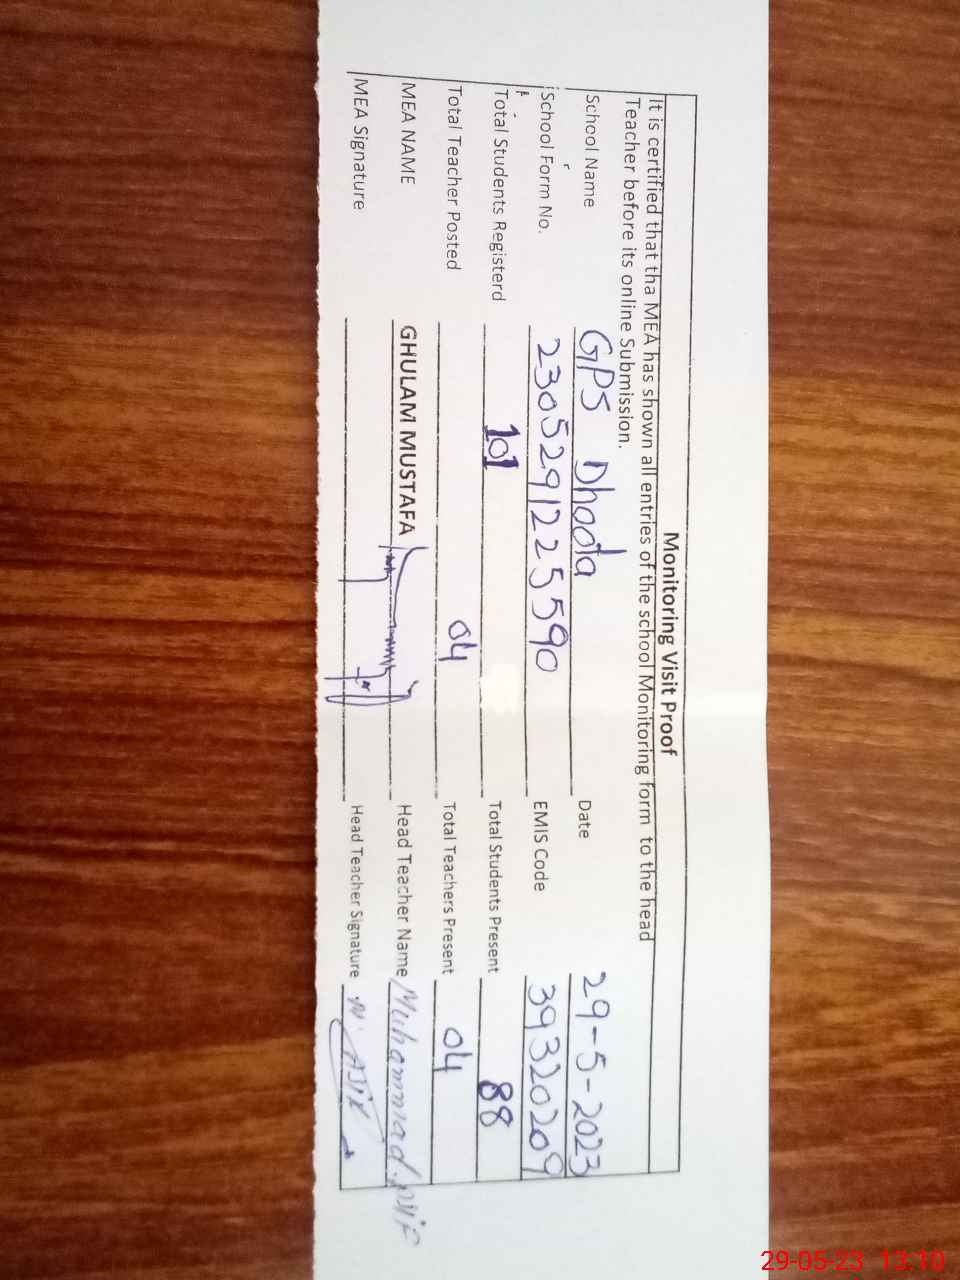 Monitoring Visit Proof
It is certified that tha MEA has shown all entries of the school Monitoring form to the head
Teacher before its online Submission.
School Name GPS Dhoota Date 29-5-2023
School Form No. 2305291225590 EMIS Code 39320209
Total Students Registerd 101 Total Students Present 88
Total Teacher Posted 04 Total Teachers Present 04
MEA NAME GHULAM MUSTAFA Head Teacher Name Muhammad Asif
MEA Signature Head Teacher Signature M. Asif
29-05-23 13:10